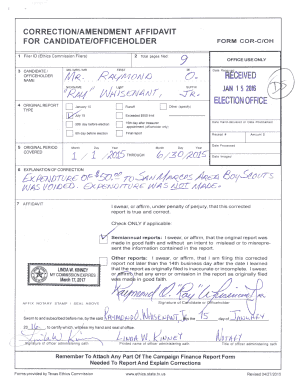 CORRECTION/AMENDMENT AFFIDAVIT
FOR CANDIDATE/OFFICEHOLDER
FORM COR-C/OH
1 Filer ID (Ethics Commission Filers)
2 Total pages filed
9
OFFICE USE ONLY
3 CANDIDATE/
OFFICEHOLDER
NAME
MR. RAYMOND O.
"RAY" WHISENANT, JR.
RECEIVED
JAN 15 2015
ELECTION OFFICE
4 ORIGINAL REPORT
TYPE
January 15
July 15
30th day before election
8th day before election
Runoff
Exceeded $500 limit
Final report
Other (specify)
Receipt #
Amount $
Date Processed
Date Imaged
5 ORIGINAL PERIOD
COVERED
1/1/2015 THROUGH 6/30/2015
6 EXPLANATION OF CORRECTION
EXPENDITURE OF $50.00 TO SAN MARCOS AREA BOY SCOUTS
WAS VOIDED. EXPENDITURE WAS NOT MADE.
7 AFFIDAVIT
I swear, or affirm, under penalty of perjury, that this corrected
report is true and correct.
Check ONLY if applicable:
Semiannual reports: I swear, or affirm, that the original report was
made in good faith and without an intent to mislead or to misrepre-
sent the information contained in the report.
Other reports: I swear, or affirm, that I am filing this corrected
report not later than the 14th business day after the date I learned
that the report as originally filed is inaccurate or incomplete. I swear,
or affirm, that any error or omission in the report as originally filed
was made in good faith.
LINDA W. KINNEY
MY COMMISSION EXPIRES
March 17, 2017
Raymond O. "Ray" Whisenant Jr
Signature of Candidate or Officeholder
AFFIX NOTARY STAMP / SEAL ABOVE
Sworn to and subscribed before me, by the said RAYMOND O. WHISENANT, JR. this the 15 day of JANUARY
20 16, to certify which, witness my hand and seal of office.
Linda W. Kinney LINDA W. KINNEY NOTARY
Signature of officer administering oath
Printed name of officer administering oath
Title of officer administering oath
Remember To Attach Any Part Of The Campaign Finance Report Form
Needed To Report And Explain Corrections
Forms provided by Texas Ethics Commission
www.ethics.state.tx.us
Revised 04/27/2015